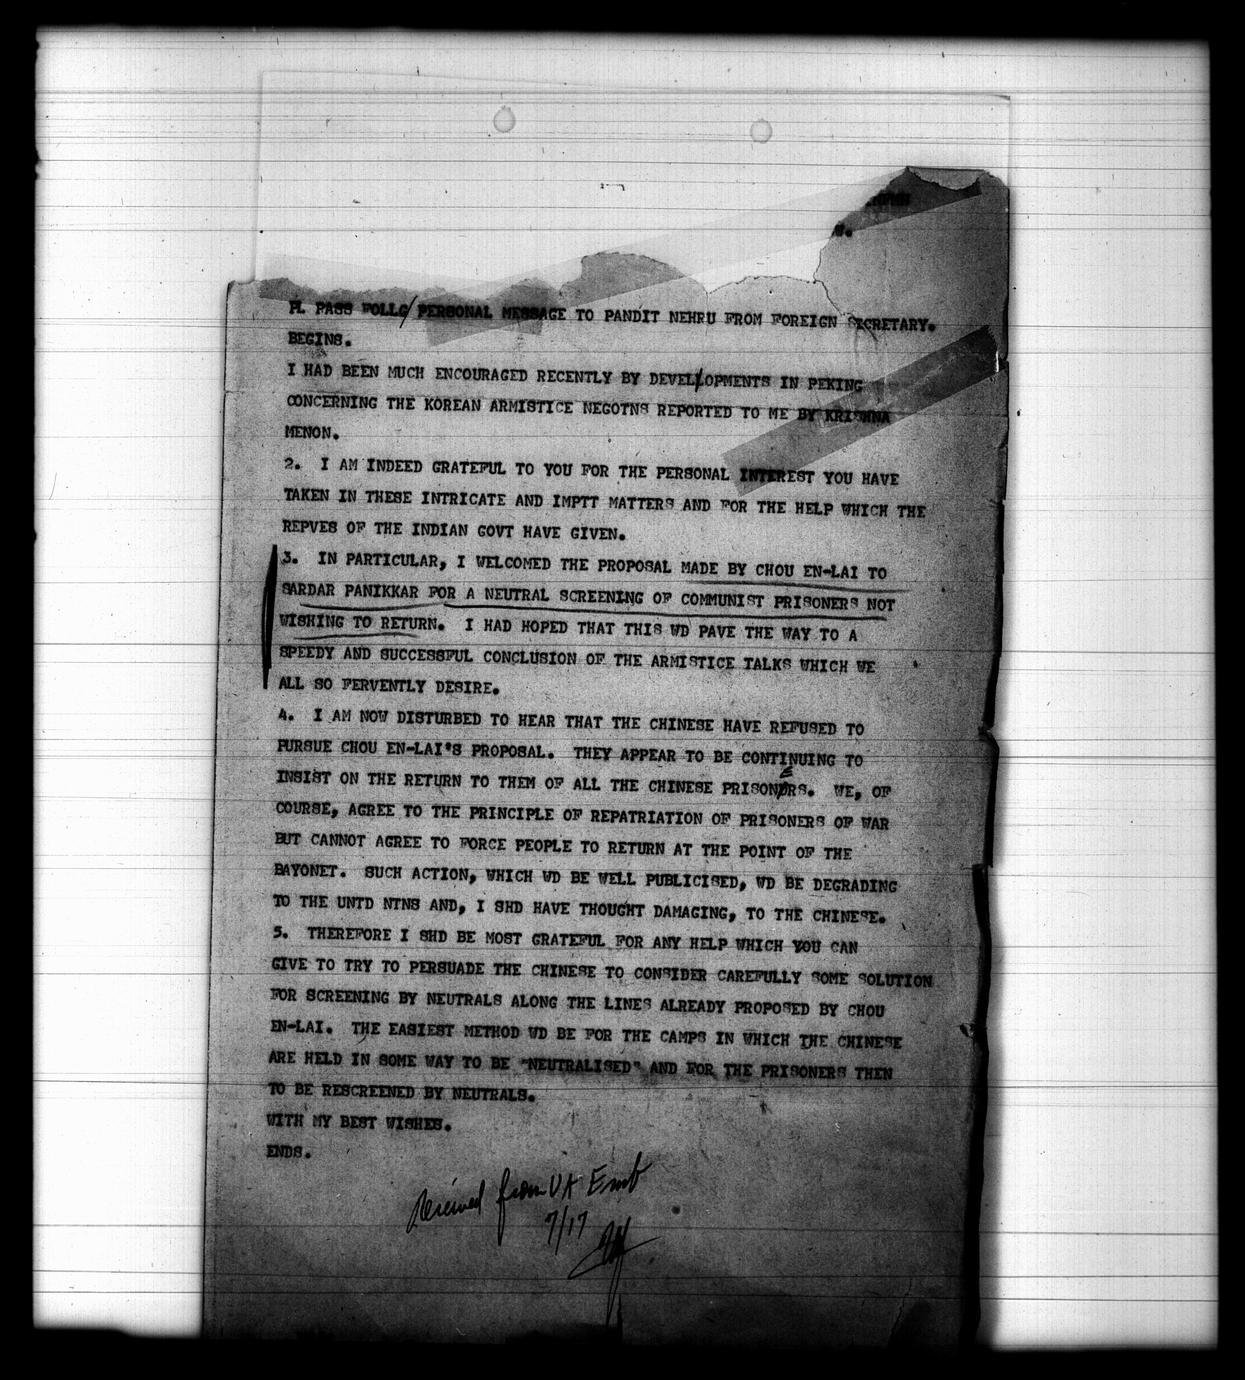 PL PASS FOLLG/PERSONAL MESSAGE TO PANDIT NEHRU FROM FOREIGN SECRETARY.
BEGINS.
I HAD BEEN MUCH ENCOURAGED RECENTLY BY DEVEL/OPMENTS IN PEKING
CONCERNING THE KOREAN ARMISTICE NEGOTNS REPORTED TO ME BY KRISHNA
MENON.
2. I AM INDEED GRATEFUL TO YOU FOR THE PERSONAL INTEREST YOU HAVE
TAKEN IN THESE INTRICATE AND IMPTT MATTERS AND FOR THE HELP WHICH THE
REPVES OF THE INDIAN GOVT HAVE GIVEN.
3. IN PARTICULAR, I WELCOMED THE PROPOSAL MADE BY CHOU EN-LAI TO
SARDAR PANIKKAR FOR A NEUTRAL SCREENING OF COMMUNIST PRISONERS NOT
WISHING TO RETURN. I HAD HOPED THAT THIS WD PAVE THE WAY TO A
SPEEDY AND SUCCESSFUL CONCLUSION OF THE ARMISTICE TALKS WHICH WE
ALL SO FERVENTLY DESIRE.
4. I AM NOW DISTURBED TO HEAR THAT THE CHINESE HAVE REFUSED TO
PURSUE CHOU EN-LAI'S PROPOSAL. THEY APPEAR TO BE CONTINUING TO
INSIST ON THE RETURN TO THEM OF ALL THE CHINESE PRISONERS. WE, OF
COURSE, AGREE TO THE PRINCIPLE OF REPATRIATION OF PRISONERS OF WAR
BUT CANNOT AGREE TO FORCE PEOPLE TO RETURN AT THE POINT OF THE
BAYONET. SUCH ACTION, WHICH WD BE WELL PUBLICISED, WD BE DEGRADING
TO THE UNTD NTNS AND, I SHD HAVE THOUGHT DAMAGING, TO THE CHINESE.
5. THEREFORE I SHD BE MOST GRATEFUL FOR ANY HELP WHICH YOU CAN
GIVE TO TRY TO PERSUADE THE CHINESE TO CONSIDER CAREFULLY SOME SOLUTION
FOR SCREENING BY NEUTRALS ALONG THE LINES ALREADY PROPOSED BY CHOU
EN-LAI. THE EASIEST METHOD WD BE FOR THE CAMPS IN WHICH THE CHINESE
ARE HELD IN SOME WAY TO BE "NEUTRALISED" AND FOR THE PRISONERS THEN
TO BE RESCREENED BY NEUTRALS.
WITH MY BEST WISHES.
ENDS.
Received from UK Emb
7/17